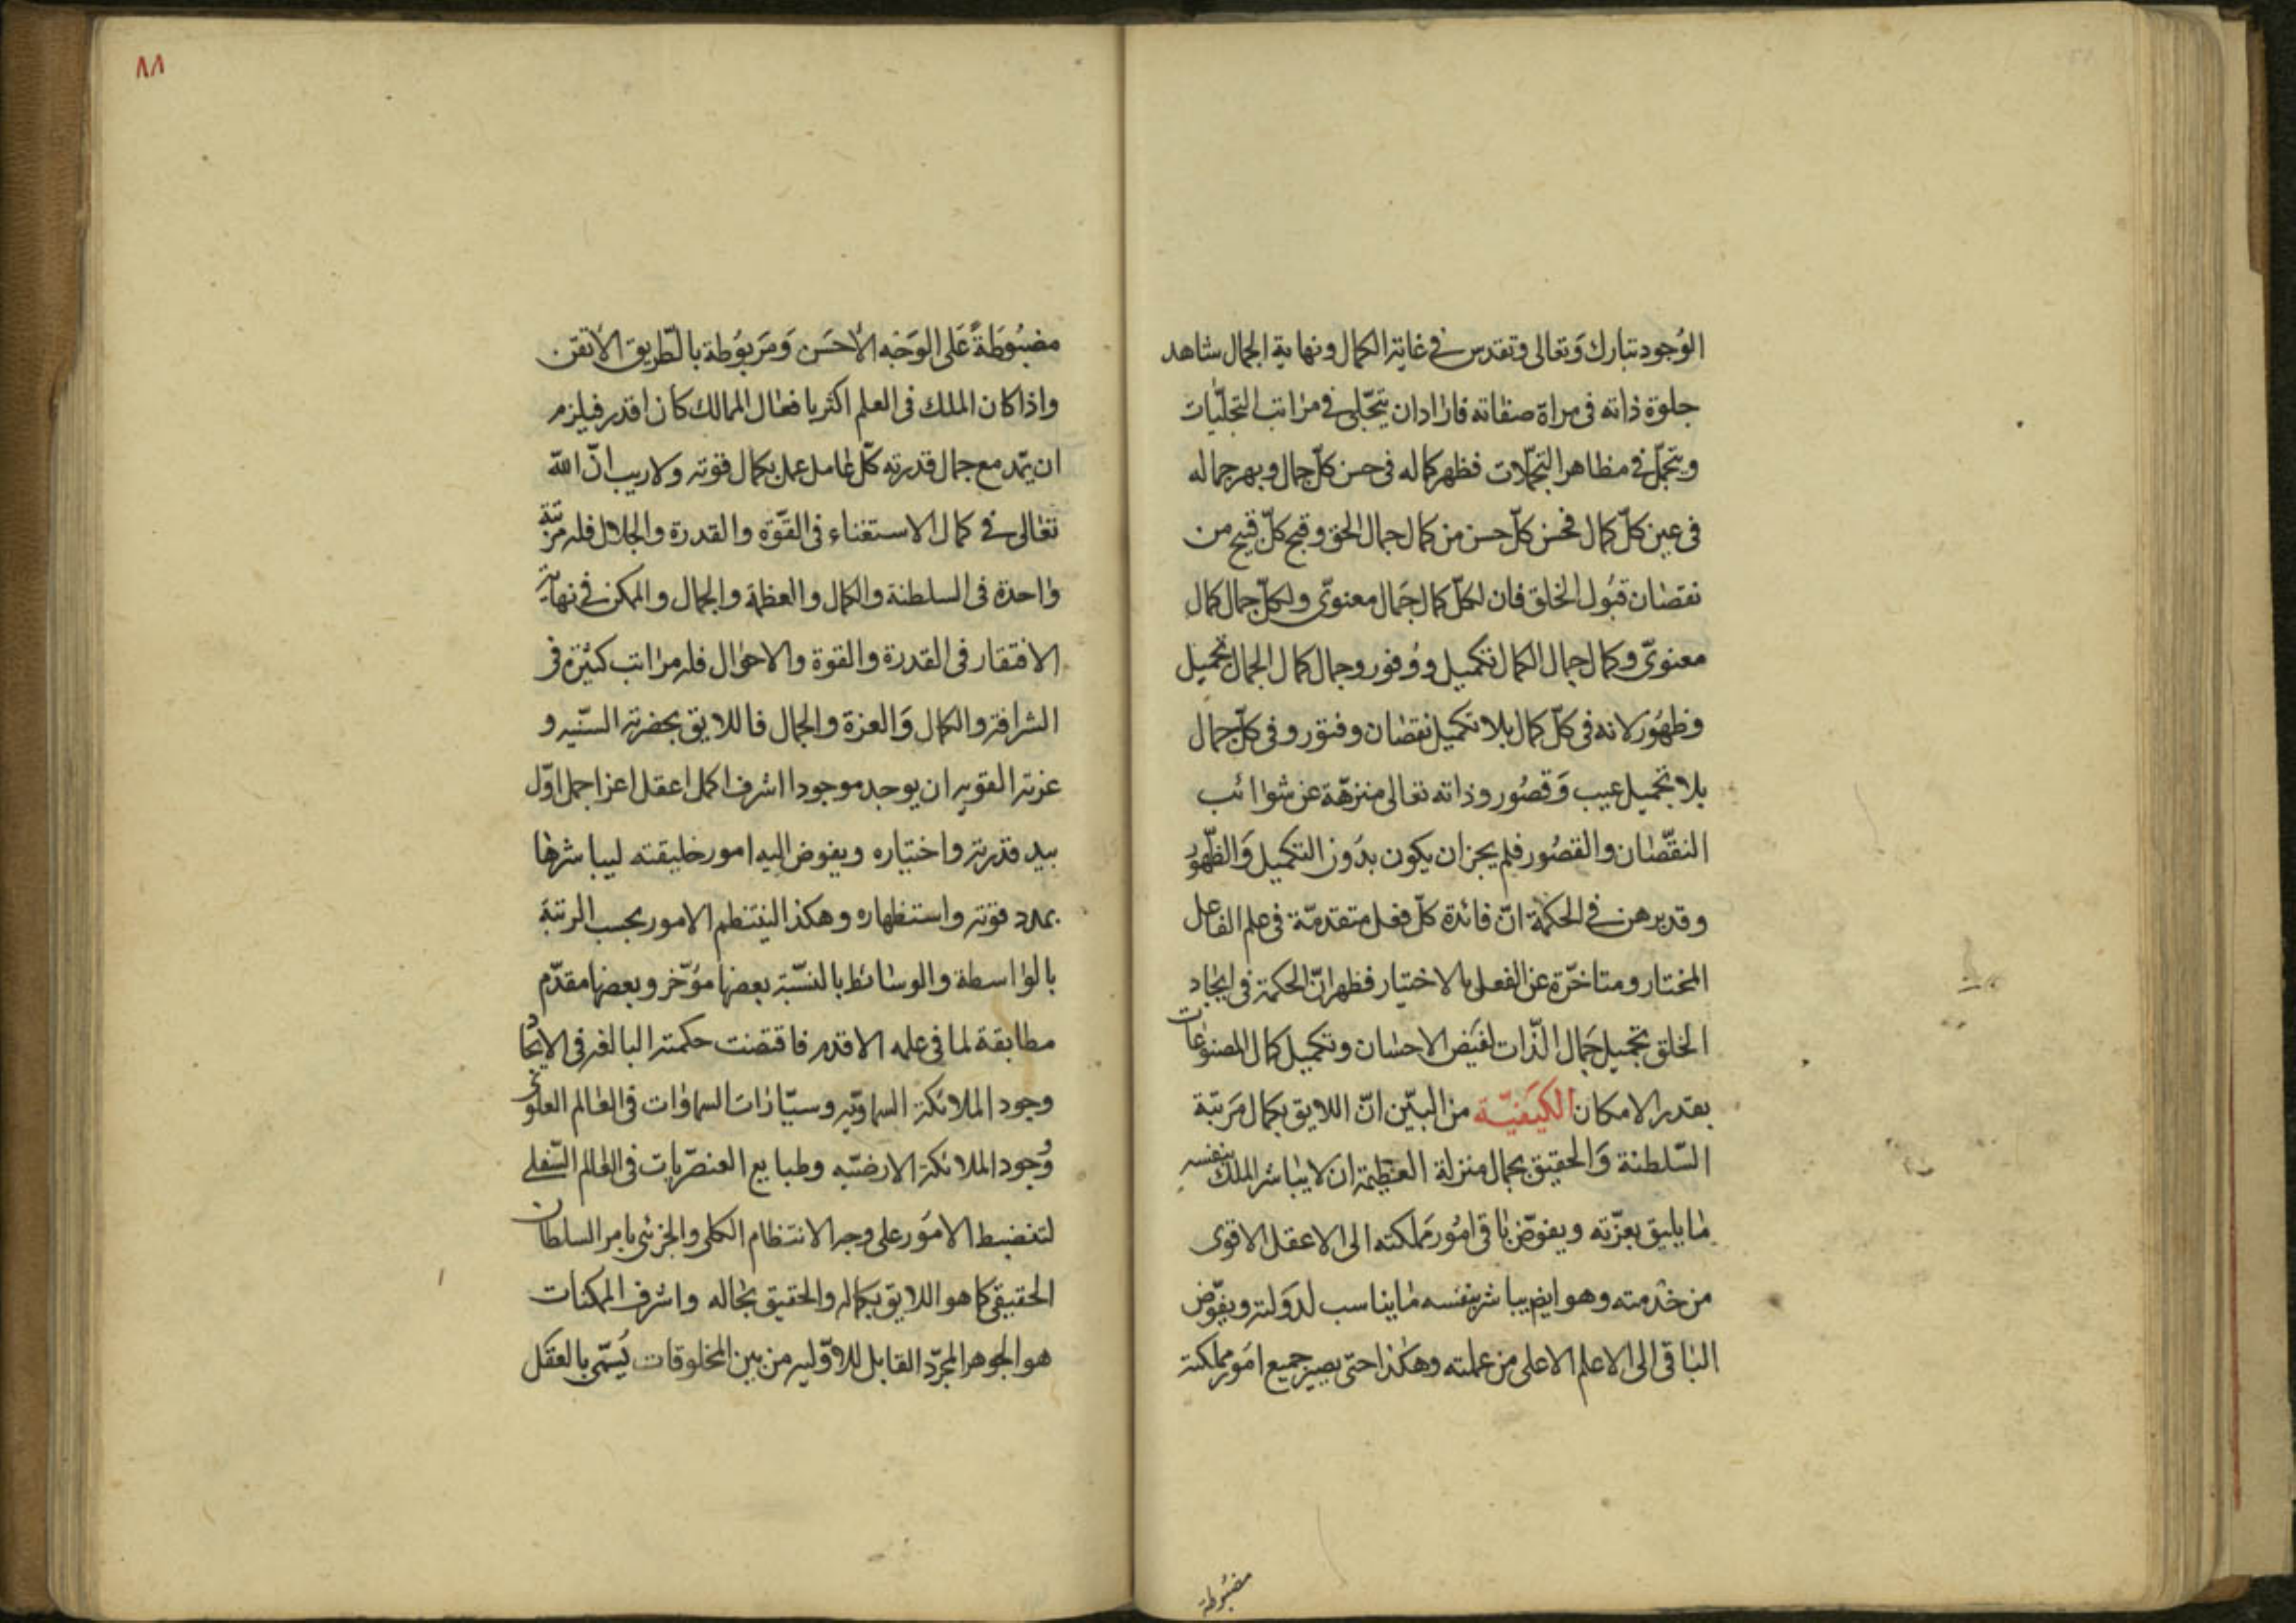 الوُجود تبارك وَتعالى وتقدس في غاية الكمال ونهاية الجمال شاهد
جلوة ذاته فى مراة صفاته فاراد ان يتجّلى في مراتب التجلّيات
ويتجمّل في مظاهر التجمّلات فظهر كماله فى حسن كلّ جمال وبهر جماله
فى عين كلّ كمال فحُسن كلّ حسن من كمال جمال الحق وقبح كلّ قبيح من
نقصان قبُول الخلق فان لكلّ كمال جَمال معنوىّ ولكلّ جمال كمال
معنوىّ وكمال جمال الكمال تكميل ووُفور وجمال كمال الجمال تجميل
وظهُور لانه فى كلّ كمال بلا تكميل نقصان وفتور وفى كلّ جمال
بلا تجميل عيب وَقصُور وذاته تعالى منزهّة عن شوائب
النقّصان والقصُور فلم يجز ان يكون بدُون التكميل وَالظّهوُر
وقد برهن في الحكمة انّ فائدة كلّ فعل متقدمّة فى علم الفاعل
المختار ومتاخرّة عن الفعل بالاختيار فظهر انّ الحكمة فى ايجاد
الخلق تجميل جَمال الذّات لفيَض الاحسان وتكميل كمال المصنوعات
بقدر الامكان الكيَفيّة من البيّن انّ اللايق بكمال مَرتبة
السّلطنة وَالحقيق بجمال منزلة العظيمة ان لا يباشر الملك بنفسه
ما يليق بعزّته ويفوّض باقى امُور مَملكته الى الاعقل الاقوى
من خدمته وهو ايضا يباشر بنفسه ما يناسب لدَولته ويفوّض
الباقى الى الاعلم الاعلى من عملته وهكذا حتى يصير جميع امُور مملكته
مضبوُطه
٨٨
مضبُوَطةً عَلى الوَجْه الأحسَن وَمَربوُطة بالطّريق الأتقن
واذا كان الملك فى العلم اكثر بافعال الممالك كان اقدر فيلزم
ان يمّد مع جمال قدرته كلّ عامل عمل بكمال قوته ولا ريب انّ الله
تعالى في كمال الاستغناء فى القوّة والقدرة والجلال فله مرتبة
واحدة فى السلطنة والكمال والعظمة والجمال والممكن في نهاية
الافتقار فى القدرة والقوة والاحوال فله مراتب كثيرة فى
الشرافة والكمال وَالعزة والجمال فاللايق بحضرته السنّيه و
عزته القويه ان يوجد موجودا اشرف اكمل اعقل اعز اجمل اوّل
بيد قدرته واختياره ويفوض اليه امور خليقته ليباشرها
بمدد قوته واستظهاره وهكذا لينتظم الامور بحسب الرتبة
بالواسطة والوسائط بالنسّبة بعضها موُخّر وبعضها مقدّم
مطابقة لما فى علمه الاقدم فاقتضت حكمته البالغه فى الايجاد
وجود الملائكة السماويّه وسيّارات السماوات فى العالم العلوى
وُجود الملائكة الارضيّه وطبايع العنصرّيات فى العالم السّفلى
لتنضبط الامَور على وجه الانتظام الكلى والجزئى بامر السلطان
الحقيقى كما هو اللايق بكماله والحقيق بحاله واشرف الممكنات
هو الجوهر المجرّد القابل للاوّليه من بين المخلوقات يُسمّى بالعقل